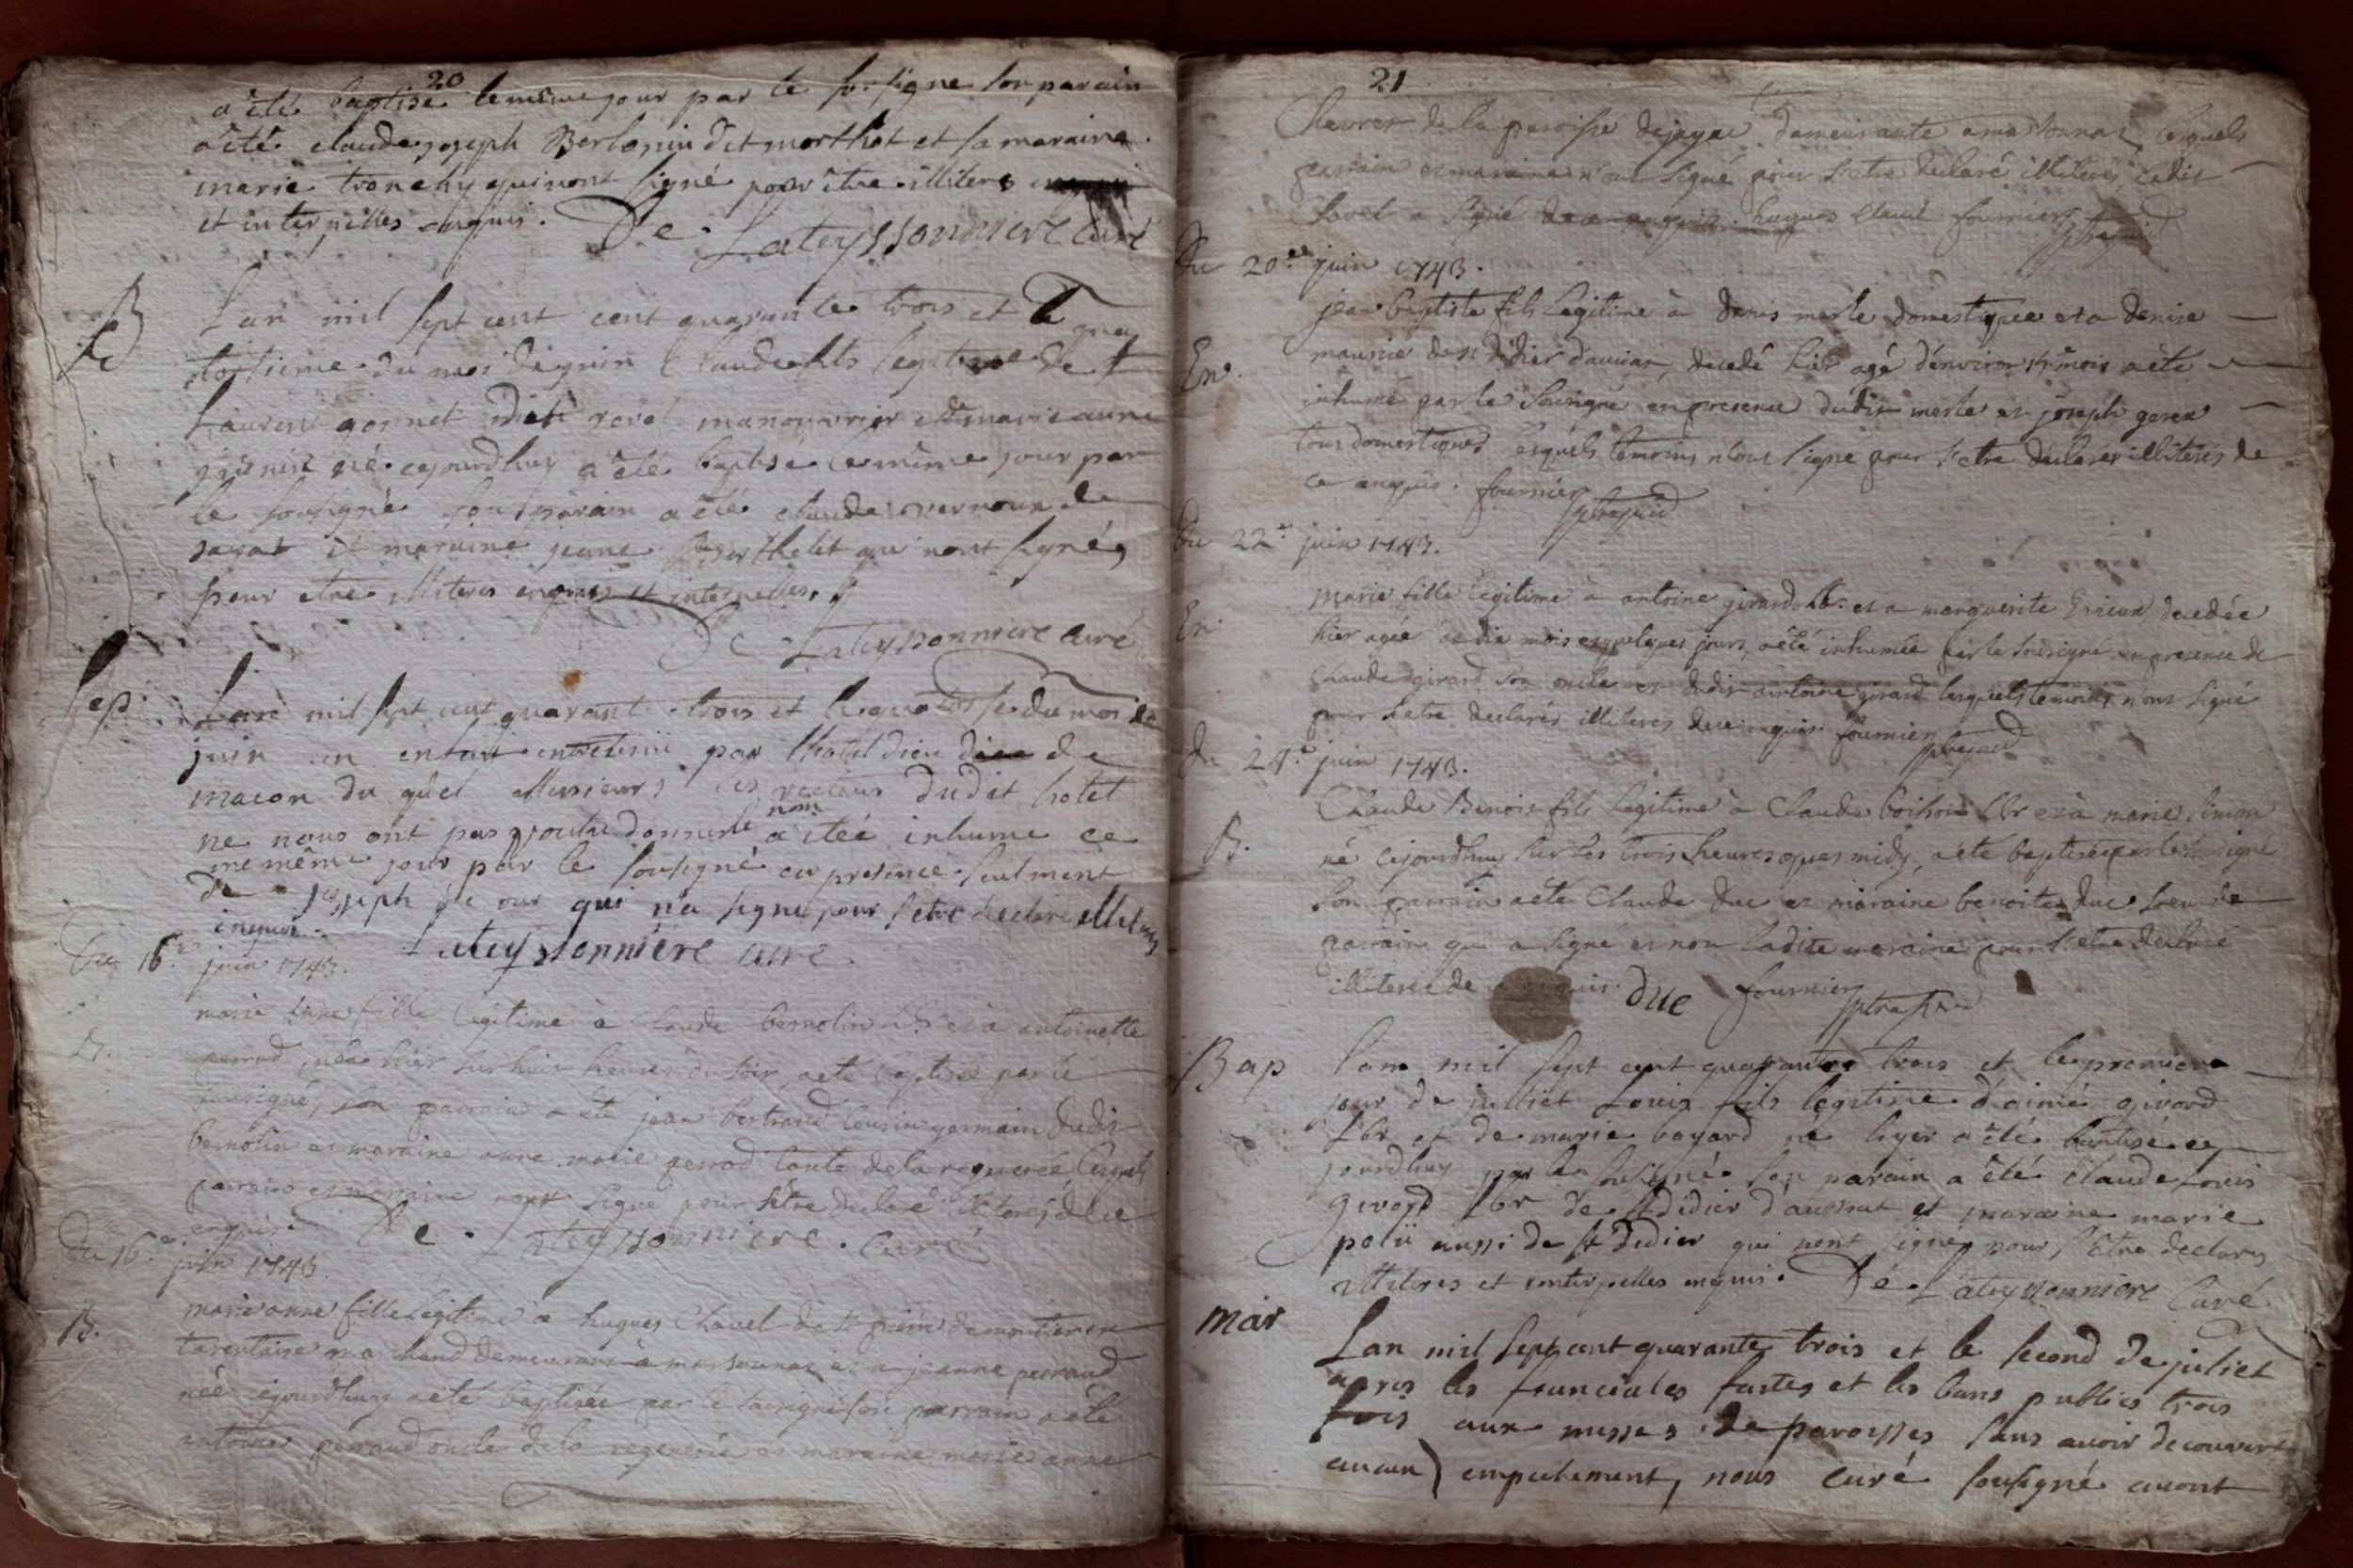 20
a êté baptisé le même jour par le sousigne son parain
a êté claude joseph Berlonin dit morthot et sa maraine
marie tronchy qui nont signé pour être illiteres
et interpelles enquis. De Lateyssonniere Curé
B
Lan mil sept cent cent quarante trois et le quatorsieme du moi de juin Claude fils legitime de
Laurent gonnet dit rovel manouvrier et de marie anne
né cejourdhuy a êté baptise le même jour par
le sousigné son parain a êté claude vernoux de
et maraine jeanne Berthelet qui nont signés
pour etre illiteres enquis et interpelles
De Lateyssonniere curé
Sep
Lan mil sept cent quarante trois et le quatorse du moi de
juin un enfant entretenu par lhotel dieu de
macon du quel Messieurs les recteurs dudit hotel
ne nous ont pas voulu donner le nom a êtéé inhume ce
me même jour par le sousigné en presence seulment
de joseph qui na signe pour sêtre declare illiteres
enquis Lateyssonniere curé
Du 16e juin 1743.
B.
marie fille légitime à Claude bernolin Lbr et à antoinette
perrod, née hier sur huit heures du soir, a eté baptisée par le
sousigné, son parrain a eté jean bertrand cousin germain dudit
bernolin et maraine anne marie perrod tante de la regenerée lesquels
parrain et maraine nont signé pour sêtre declaré illiteres de ce
enquis. De Lateyssonniere. Curé
Du 16e juin 1743
B.
marie anne fille légitime à hugues Chavel de St de moutier en
tarentaise marchand demeurant à marsonnas et a jeanne perraud
née cejourdhuy a eté baptisée par le sousigné son parrain a eté
antoine perraud oncle de la regenerée et maraine marie anne
21
Chevrer de la paroisse dejayac demeurante a marsonnas lesquels
parrain et maraine n'ont signé pour s'etre declaré illiteres, ledit
Chavel a signé de ce enquis. hugues Chavel fournier
Du 20e juin 1743.
En.
jean baptiste fils légitime à denis merle domestique et a denise
de st didier daussiat, decedé hier agé d'environ mois a eté
inhumé par le sousigné en presence dudit merle et joseph
tous domestiques lesquels temoins n'ont signé pour s'etre declares illiteres de
ce enquis. fournier
Du 22e juin 1743.
En.
marie fille légitime à antoine girard Lbr. et a marguerite decedée
hier agée de dix mois et quelques jours, a eté inhumée par le sousigné en presence de
Claude girard son oncle et dudit antoine girard lesquels temoins n'ont signé
pour s'etre declarés illiteres de ce enquis fournier
Du 24e juin 1743.
B.
Claude Benoit fils légitime à Claude Lbr et à marie simon
né cejourdhuy sur les trois heures apres midy, a eté baptisé par le sousigné
son parrain a eté Claude duc et maraine benoite duc soeur de
parrain qui a signé et non ladite maraine pour s'etre declaré
illiterée de enquis. duc fournier
Bap
Lan mil sept cent quarante trois et le premiere
jour de julliet Louis fils légitime d'aimé givord
Lbr et de marie bayard né hyer a êté baptisé ce
jourdhuy par le sousigné son parain a êté claude Louis
givord Lbr de st Didier d'aussiat et maraine marie
aussi de st Didier qui nont signés pour s'être declares
illiteres et interpelles enquis. De Lateyssonniere Curé
mar
Lan mil sept cent quarante trois et le second de juliet
apres les faites et les bans publies trois
fois aux messes de paroisses sans avoir decouvert
aucun empechement, nous curé sousigné avont